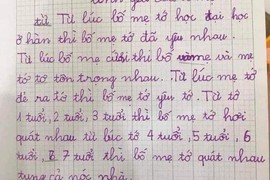 từ. Từ lúc bố mẹ tớ học đại học
ở hàn thì bố mẹ tớ đã yêu nhau.
Từ lúc bố mẹ cưới thì bố và mẹ
tớ tớ tôn trọng nhau. Từ lúc mẹ tớ
đẻ ra tớ thì bố mẹ tớ yêu tớ. Từ tớ
1 tuổi, 2 tuổi, 3 tuổi thì bố mẹ tớ hơi
quát nhau từ lúc tớ 4 tuổi, 5 tuổi, 6
tuổi, 7 tuổi thì bố mẹ tớ quát nhau
tung cả nóc nhà.